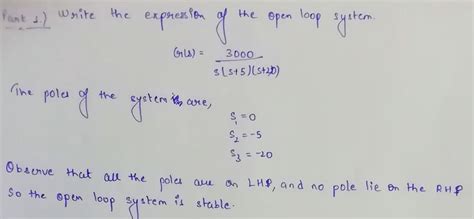 Part 1.) Write the expression of the open loop system.
G(s) = 3000
s(s+5)(s+20)
The poles of the system are,
S1 = 0
S2 = -5
S3 = -20
Observe that all the poles are on LHP, and no pole lie on the RHP
So the open loop system is stable.